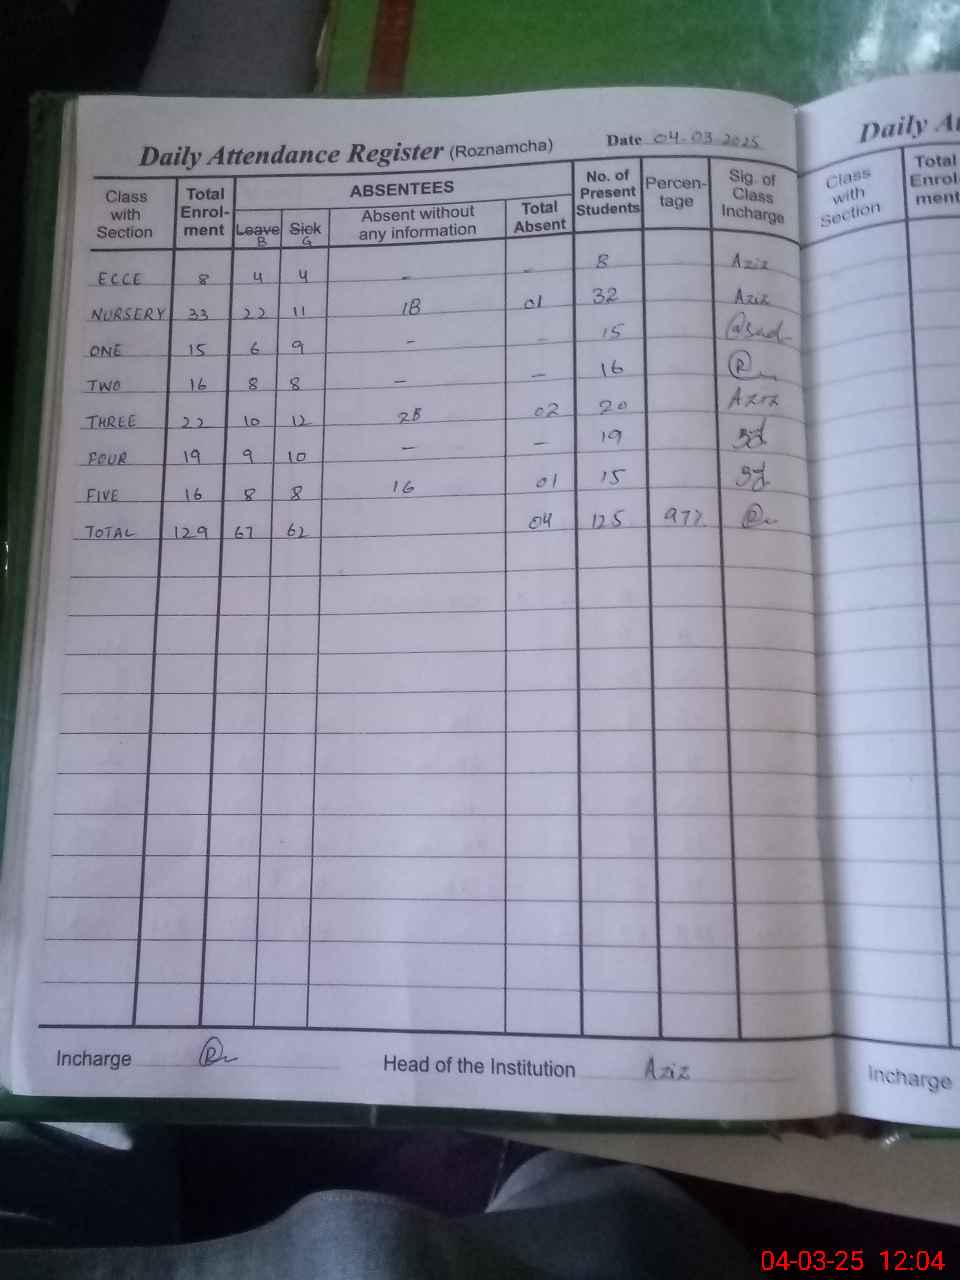 Daily Attendance Register (Roznamcha) Date 04-03-2025
Class with Section Total Enrol-ment ABSENTEES No. of Present Students Percen-tage Sig. of Class Incharge
Leave Sick Absent without any information Total Absent
B G
ECCE 8 4 4 - - 8 Aziz
NURSERY 33 22 11 1B 01 32 Aziz
ONE 15 6 9 - - 15
TWO 16 8 8 - - 16
THREE 22 10 12 2B 02 20 Aziz
FOUR 19 9 10 - - 19
FIVE 16 8 8 1G 01 15
TOTAL 129 67 62 04 125 97%
Incharge Head of the Institution Aziz
Daily At
Class with Section Total Enrol-ment
Incharge
04-03-25 12:04